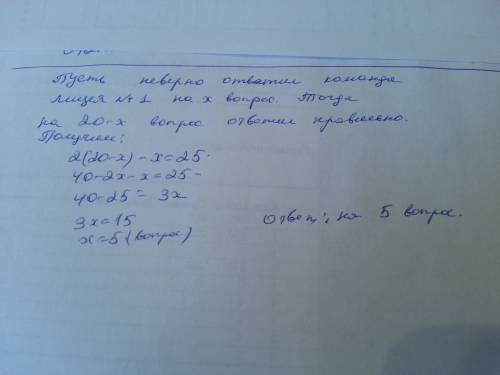 Пусть неверно ответила команда
лицея №1 на x вопрос. Тогда
на 20-x вопрос ответили правильно.
Получим:
2(20-x) - x = 25
40-2x-x = 25
40-25 = 3x
3x = 15
x = 5 (вопрос)
Ответ: на 5 вопрос.